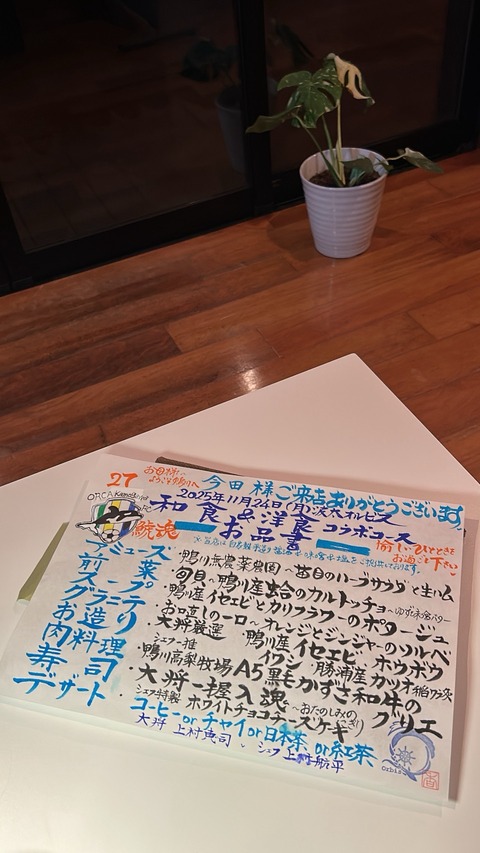 27
お母様へ
ようこそ鴨川へ
今田様ご来店ありがとうございます。
2025年11月24日(月)次大オルビス
ORCA Kamogawa FC
和食&洋食コラボコース
鯱魂
お品書
愉しいひとときを
お過ごし下さい
アミューズ
鴨川無農薬農園〜苗目のハーブサラダと生ハム
前菜
旬目〜鴨川産蛤のカルトッチョ〜ゆず味
スープ
鴨川産イセエビとカリフラワーのポタージュ
グラニテ
お口直しの一口〜オレンジとジンジャーのソルベ
お造り
大将厳選 鴨川産イセエビ、ホウボウ
イワシ・勝浦産カツオ
肉料理
シェフ一推
鴨川高梨牧場A5黒毛かずさ和牛のグリエ
寿司
大将一握入魂〜おたのしみのにぎり
デザート
シェフ特製 ホワイトチョコチーズケーキ
コーヒーorチャイor日本茶、or紅茶、
大将 上村恵司 シェフ上村航平
orbis